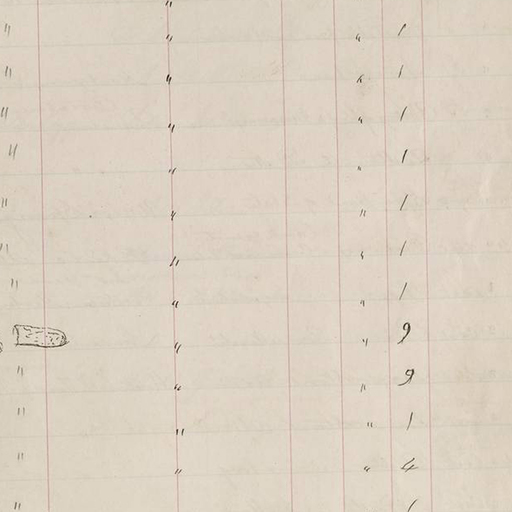 "
" " " 1
" " " 1
" " " 1
" " " 1
" " " 1
" " " 1
" " " 1
" " " 1
" " 9
" " " 9
" " " 1
" " " 4
" 1